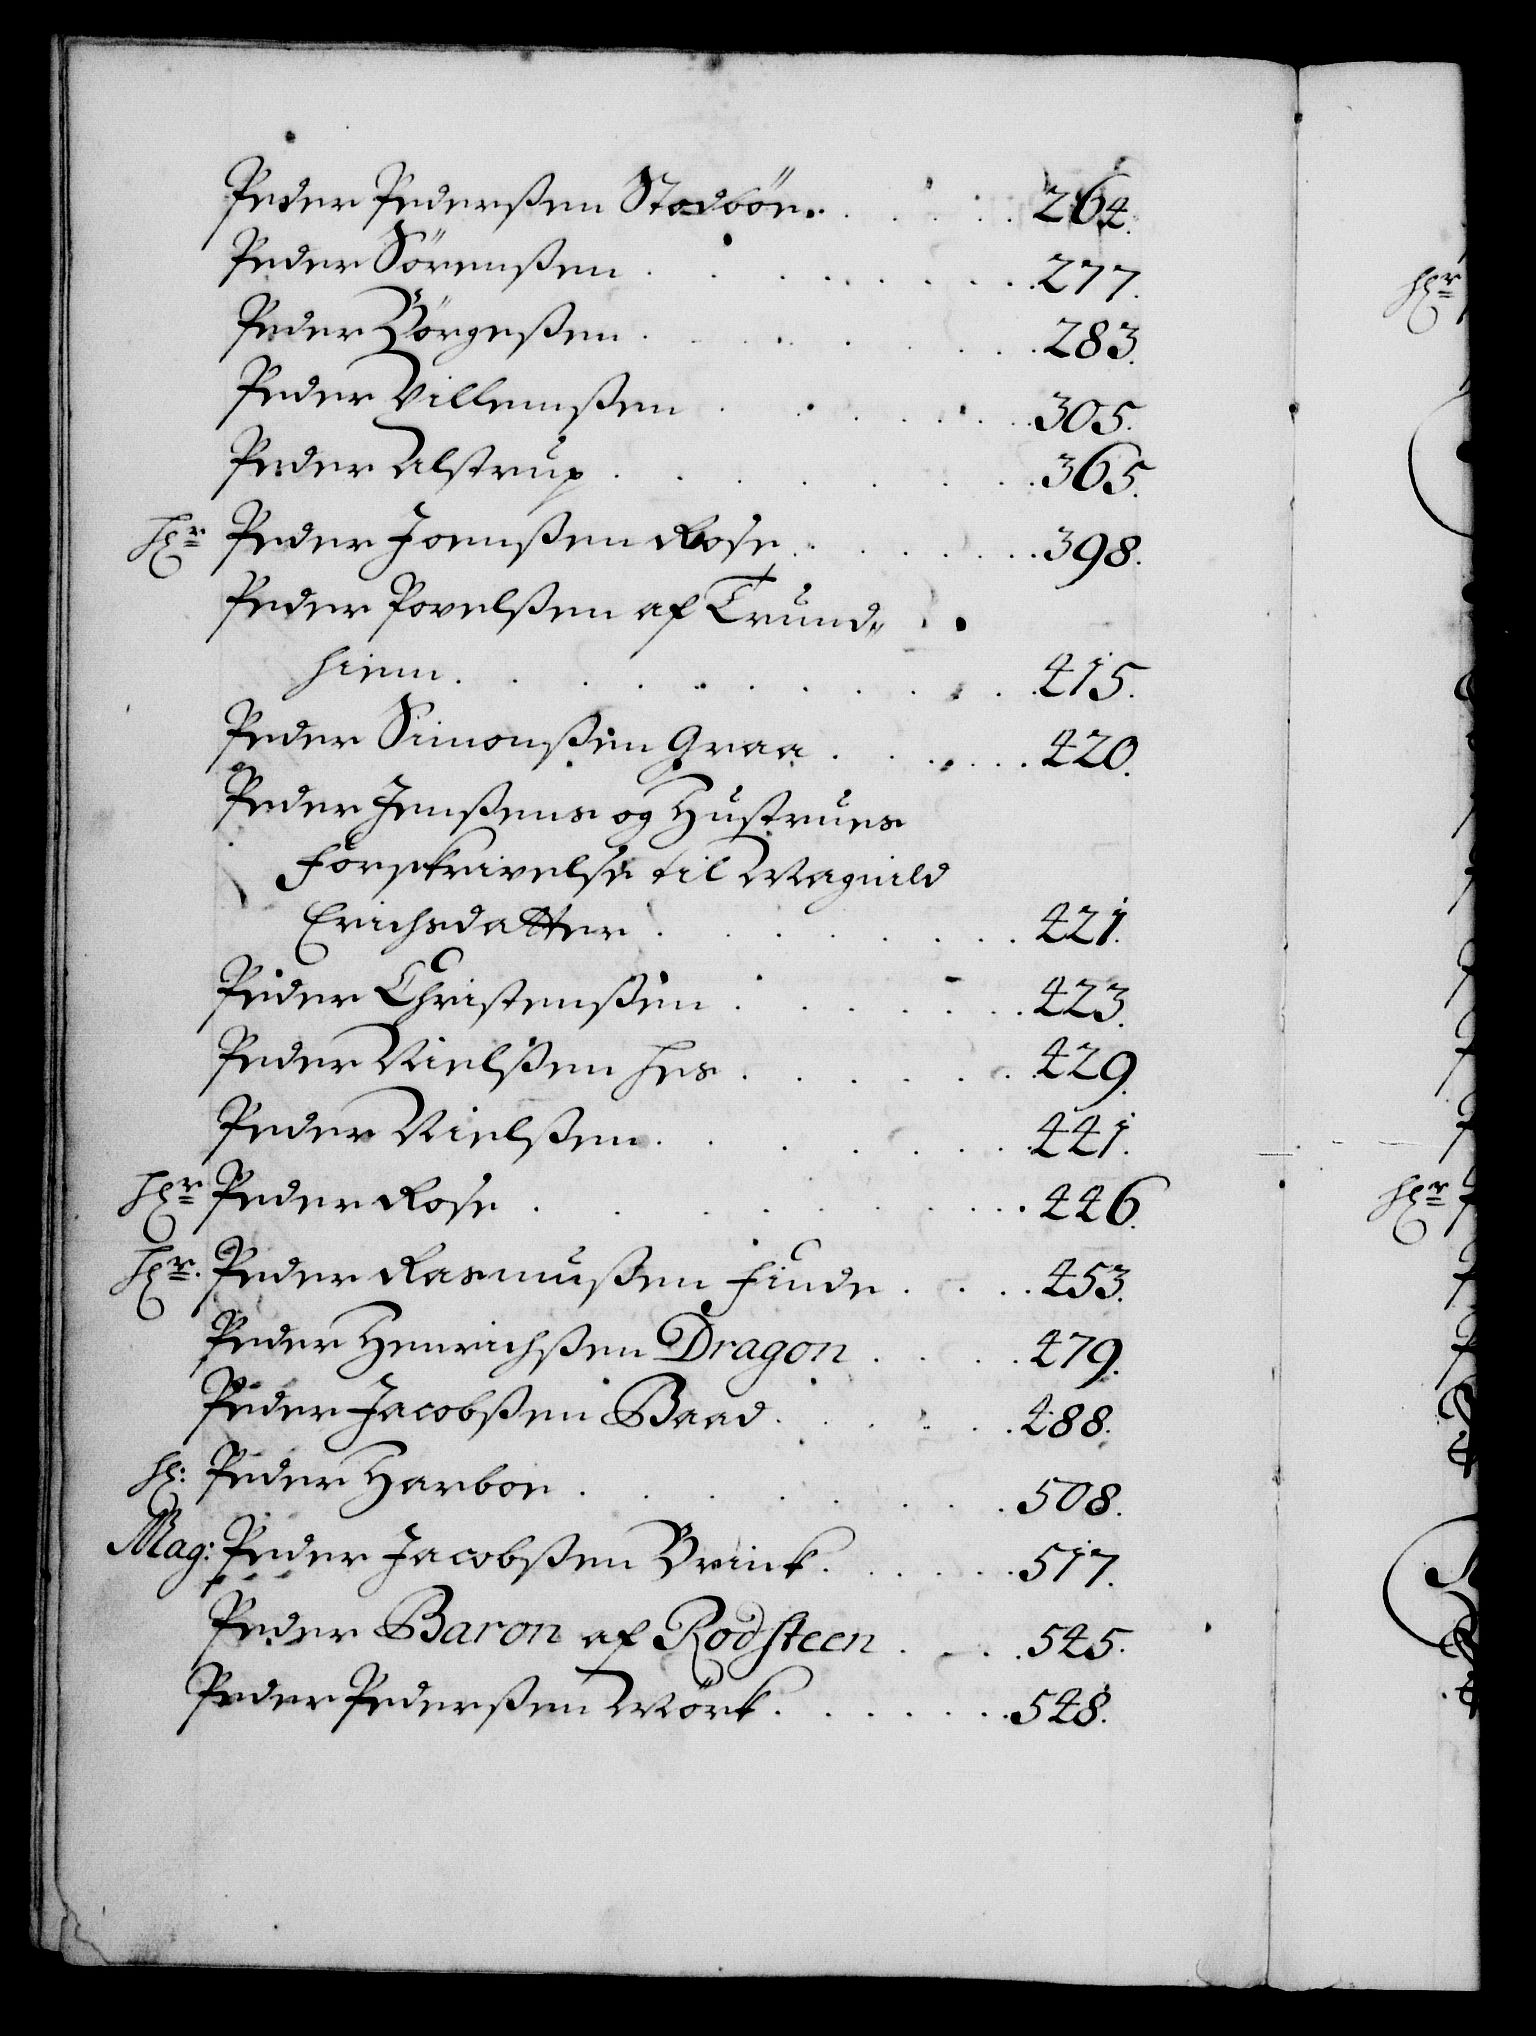 Peder Pederßen Stodböe. . . . . 264.
Peder Sörenßen . . . . . . . 277.
Peder Börgeßen . . . . . . . 283.
Peder Villemßen . . . . . . 305.
Peder Alstrup . . . . . . . 365.
Hr Peder Joenßen Rose . . . . . 398.
Peder Povelßen af Trund„
hiem . . . . . . . . . 415.
Peder Simonßen Graa . . . . . 420.
Peder Jenßens og Hustrues
forskrivelse til Magnild
Erichsdatter . . . . . . . 421.
Peder Christenßen . . . . . . 423.
Peder Nielßen Hes . . . . . . 429.
Peder Nielßen . . . . . . . 441.
Hr Peder Rose . . . . . . . . 446.
Hr. Peder Rasmußen Finde . . . . 453.
Peder Henrichßen Dragon . . . . 479.
Peder Jacobßen Baad . . . . . 488.
H: Peder Harboe . . . . . . . 508.
Mag: Peder Jacobßen Brinck . . . . . 517.
Peder Baron af Rodsteen . . . . 545.
Peder Pederßen Mörk . . . . . . 548.
Hr
Hr